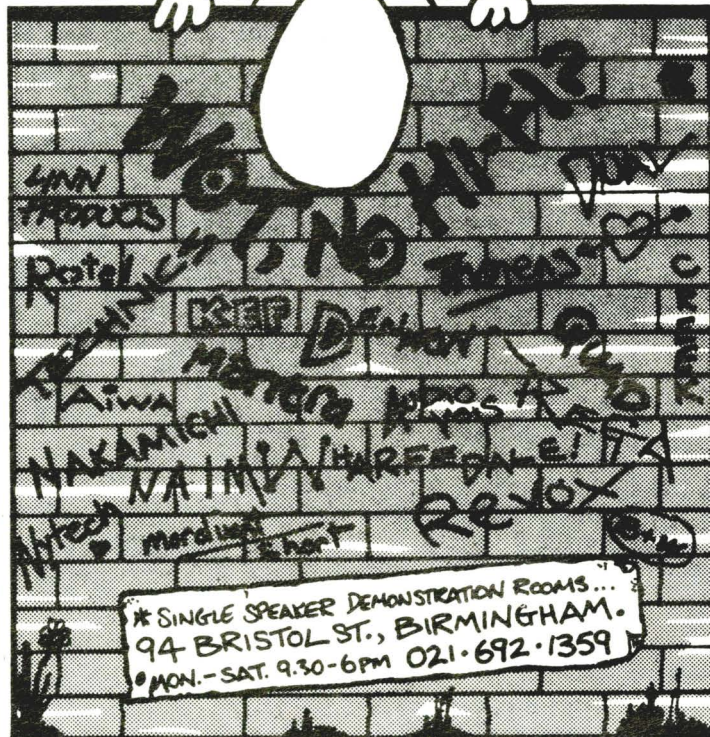 WOT, NO HI-FI?
LINN
PRODUCTS
DUAL
Rotel
TECHNICS
Thorens
CREEK
KEF
DENNON
QUAD
Aiwa
Marantz
AUDIO
BETA
NAKAMICHI
NAIM
WHARFEDALE!
REVOX
Nytech
mordaunt
short
B+W
* SINGLE SPEAKER DEMONSTRATION ROOMS...
94 BRISTOL ST., BIRMINGHAM.
MON.-SAT. 9.30-6PM 021·692·1359